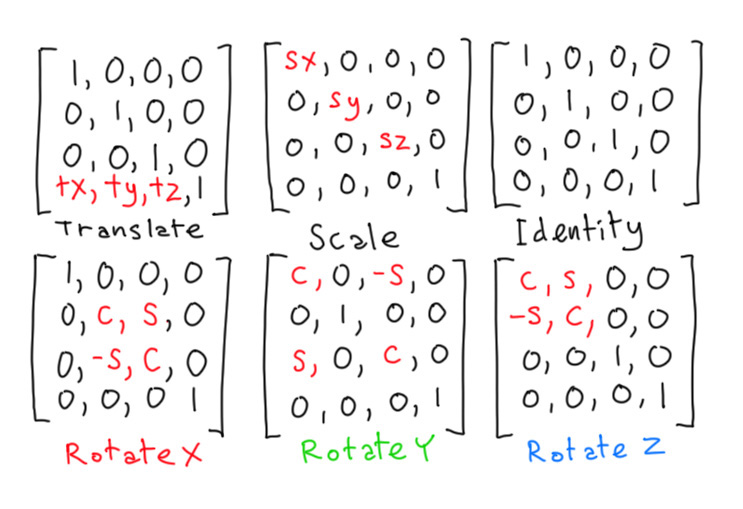 1, 0, 0, 0
0, 1, 0, 0
0, 0, 1, 0
tx, ty, tz, 1
Translate
sx, 0, 0, 0
0, sy, 0, 0
0, 0, sz, 0
0, 0, 0, 1
Scale
1, 0, 0, 0
0, 1, 0, 0
0, 0, 1, 0
0, 0, 0, 1
Identity
1, 0, 0, 0
0, C, S, 0
0, -S, C, 0
0, 0, 0 1
Rotate X
C, 0, -S, 0
0, 1, 0, 0
S, 0, C, 0
0, 0, 0, 1
Rotate Y
C, S, 0, 0
-S, C, 0, 0
0, 0, 1, 0
0, 0, 0, 1
Rotate Z